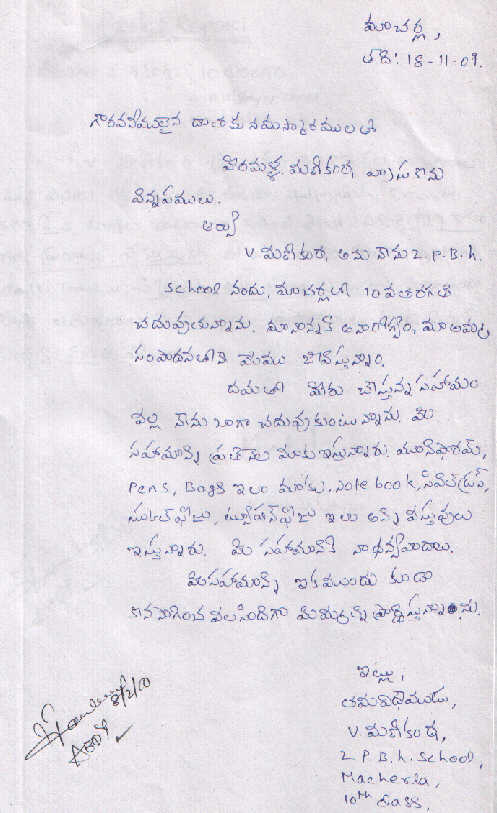 మాచర్ల,
తేది: 18-11-09.
గౌరవనీయులైన దాతలకు నమస్కారములతో
మణికంఠ వ్రాసుకొను
విన్నపములు.
ఆర్యా
V. మణికంఠ అను నేను Z.P.B.h.
School నందు, మాచర్లలో 10వ తరగతి
చదువుతున్నాను. మా నాన్నకి అనారోగ్యం, మా అమ్మ
సంపాదనతోనే మేము జీవిస్తున్నాం.
మీరు చేస్తున్న సహాయం
వల్ల నేను బాగా చదువుకుంటున్నాను. మీ
సహాయాన్ని ప్రతి నెల మాకు ఇస్తున్నారు. యూనిఫారమ్,
Pens, Bags ఇలా మాకు, Note book,
స్కూల్ ఫీజు, ట్యూషన్ ఫీజు ఇలా అన్ని వస్తువులు
ఇస్తున్నారు. మీ సహాయానికి నా ధన్యవాదాలు.
మీ సహాయాన్ని ఇక ముందు కూడా
కొనసాగించ వలసిందిగా మిమ్మల్ని ప్రార్థిస్తున్నాను.
ఇట్లు,
తమ విధేయుడు,
V. మణికంఠ,
Z P.B.h. School,
Macherla,
10th class,
8/2/10